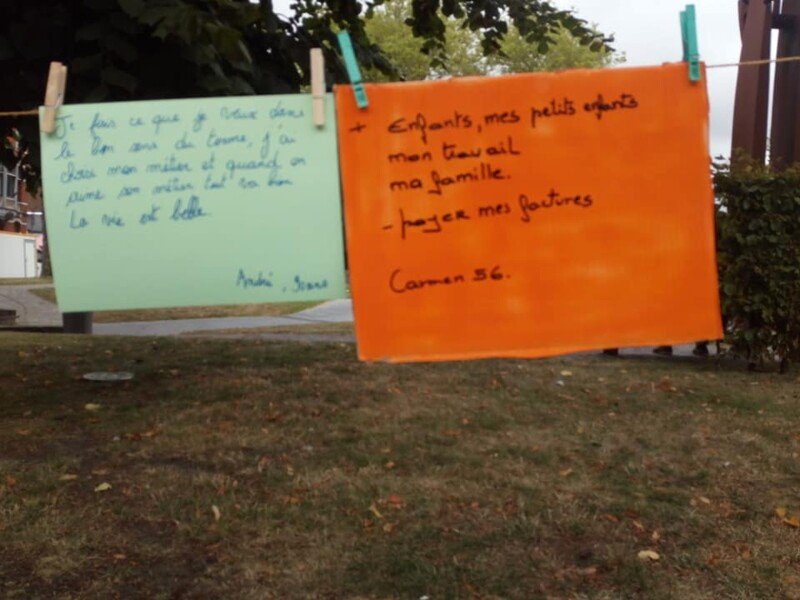 Je fais ce que je veux dans
le bon sens du terme, j'ai
choisi mon métier et quand on
aime son métier tout va bien
La vie est belle.
André, 90ans
+ Enfants, mes petits enfants
mon travail
ma famille.
- payer mes factures
Carmen 56.